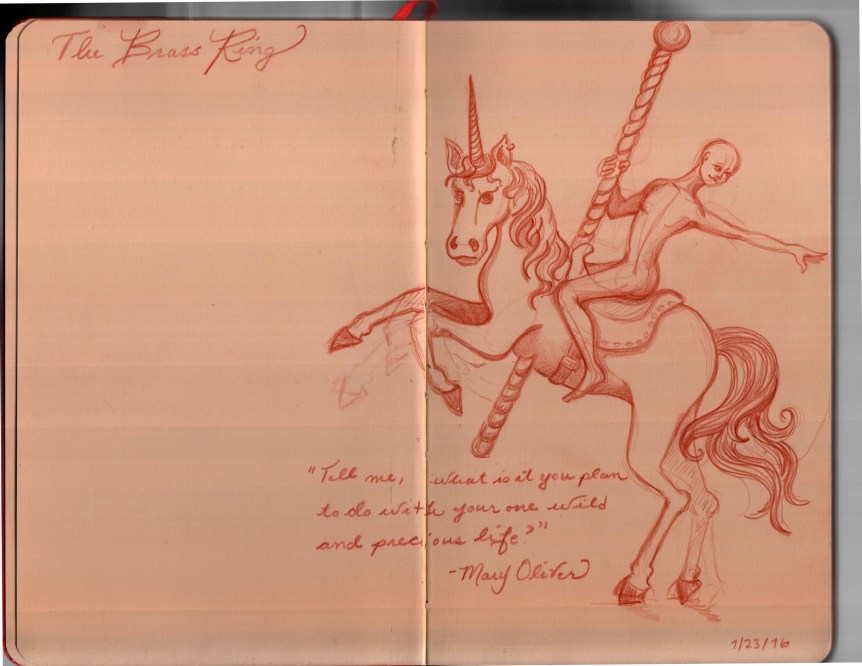 The Brass Ring
"Tell me, what is it you plan
to do with your one wild
and precious life?"
-Mary Oliver
1/23/16